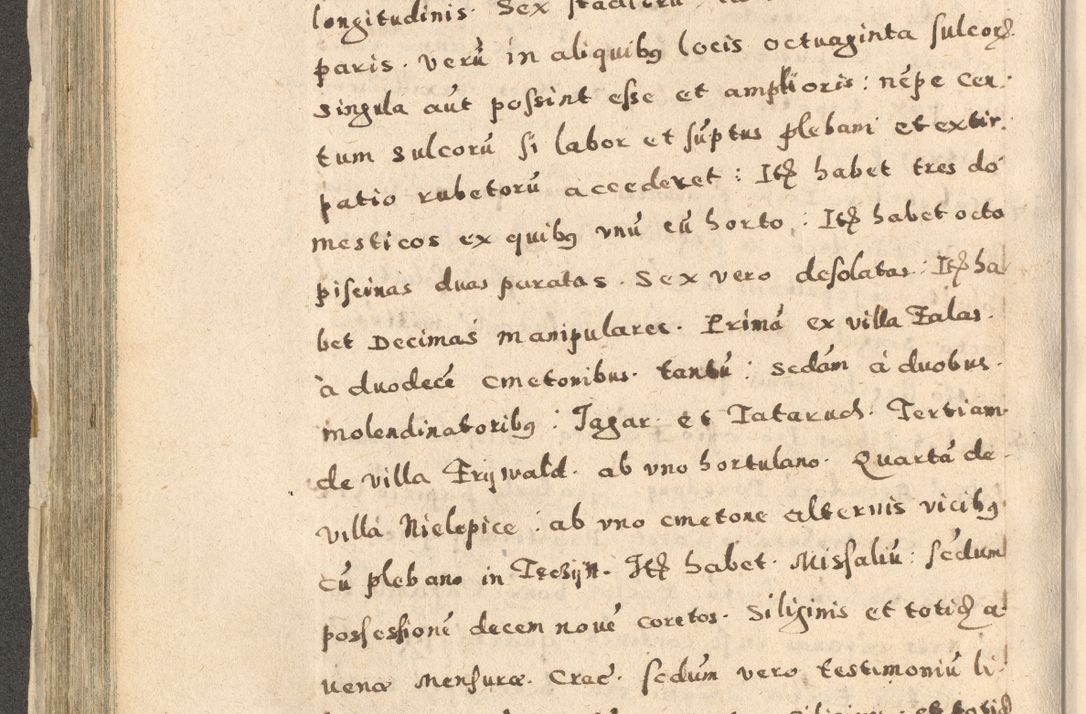 longitudinis. Sex
paris. verũ in aliquibꝫ locis octuaginta sulcoꝝ.
singula aut possint esse et amplioris: nẽpe cen-
tum sulcorũ si labor et sũptus plebani et extir-
patio rubetorũ accederet: Itẽ habet tres do-
mesticos ex quibꝫ vnũ cũ horto: Itẽ habet octo
piscinas duas paratas. Sex vero desolatas: Itẽ ha
bet Decimas manipulares. Primã ex villa Zalas.
à duodecẽ cmetonibus. tantũ: secdãm à duobus.
molendinatoribꝫ: Jagar. et Tataruch. Tertiam
de villa Frywald. ab vno hortulano. Quartã de.
villa Nielepice: ab vno cmetone alternis vicibꝫ
cũ plebano in Trzyn. Itẽ habet. Missaliũ: secdum
possessionẽ decem nouẽ coretos. Siliginis et totidẽ a-
uenæ mensuræ. Crac. secdum vero testimoniũ li-